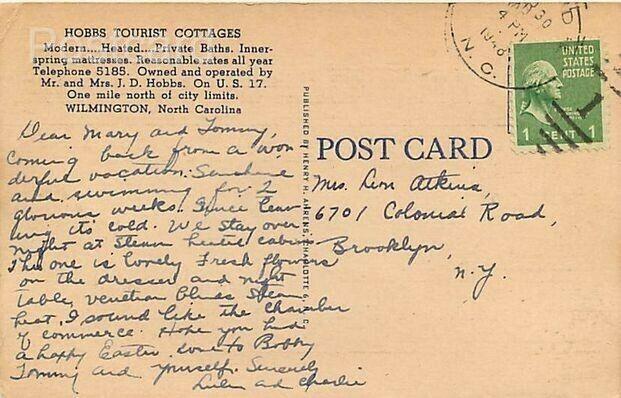 HOBBS TOURIST COTTAGES
Modern....Heated....Private Baths. Inner-
spring mattresses. Reasonable rates all year
Telephone 5185. Owned and operated by
Mr. and Mrs. J. D. Hobbs. On U. S. 17.
One mile north of city limits.
WILMINGTON, North Carolina
Dear Mary and Tommy,
Coming back from a won
derful vacation. Sunshine
and swimming for 2
glorious weeks. Since leav
ing it's cold. We stay over
night at Steam heated cabins
This one is lovely Fresh flowers
on the dresser and night
table, venetian blinds Steam
heat. I sound like the Chamber
of commerce. Hope you had
a happy Easter. Love to Bobby
Tommy and yourself. Sincerely
and Charlie
PUBLISHED BY HENRY H. AHRENS, CHARLOTTE 6, N. C.
POST CARD
30
4 PM
N. C.
UNITED
STATES
POSTAGE
1 CENT 1
Mrs. Atkins,
6701 Colonial Road,
Brooklyn,
N.Y.